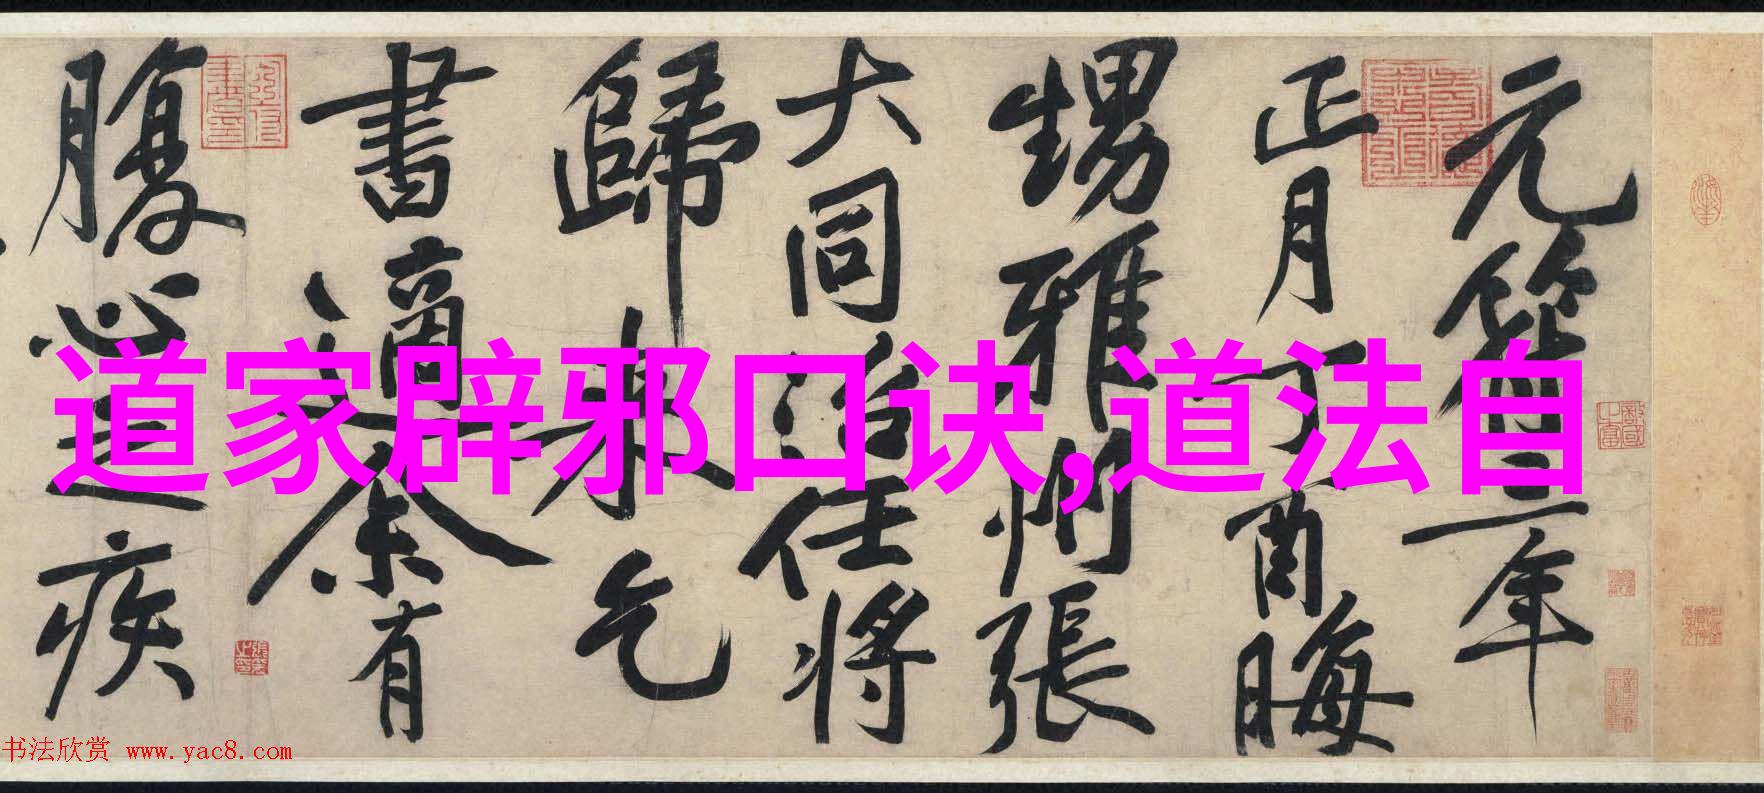 元符三年
正月丁酉晦
甥雅州張
大同治任將
歸來乞
書適余有
腹心之疾
道家辟邪口诀,道法自
书法欣赏 www.yac8.com